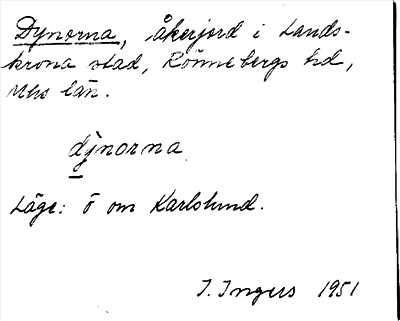 Dynorna, åkerjord i Lands-
krona stad, Rönnebergs hd,
Mhs län.
dỳ̱norna
Läge: ö om Karlslund.
I. Ingers 1951